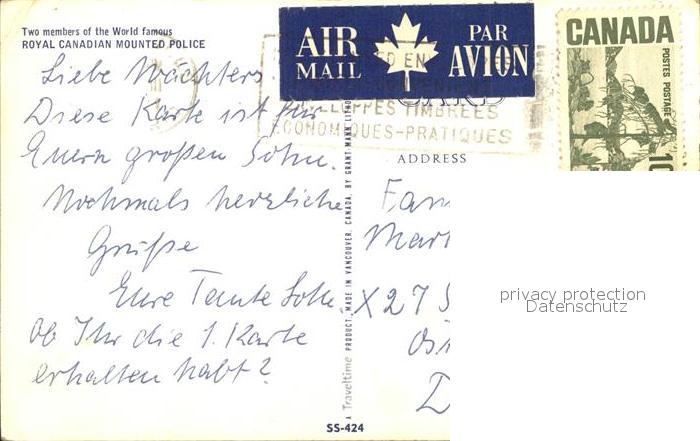 Two members of the World famous
ROYAL CANADIAN MOUNTED POLICE
AIR MAIL
PAR AVION
CANADA
POSTES POSTAGE
10
EN
TIMBRÉES
ECONOMIQUES-PRATIQUES
Liebe Wächters
Diese Karte ist für
Euern großen Sohn.
Nochmals herzliche
Grüße
Eure Tante
Ob Ihr die 1. Karte
erhalten habt?
ADDRESS
Fam
Mar
X27
D
privacy protection
Datenschutz
A Traveltime PRODUCT, MADE IN VANCOUVER, CANADA, BY GRANT-MANN LITHO
SS-424